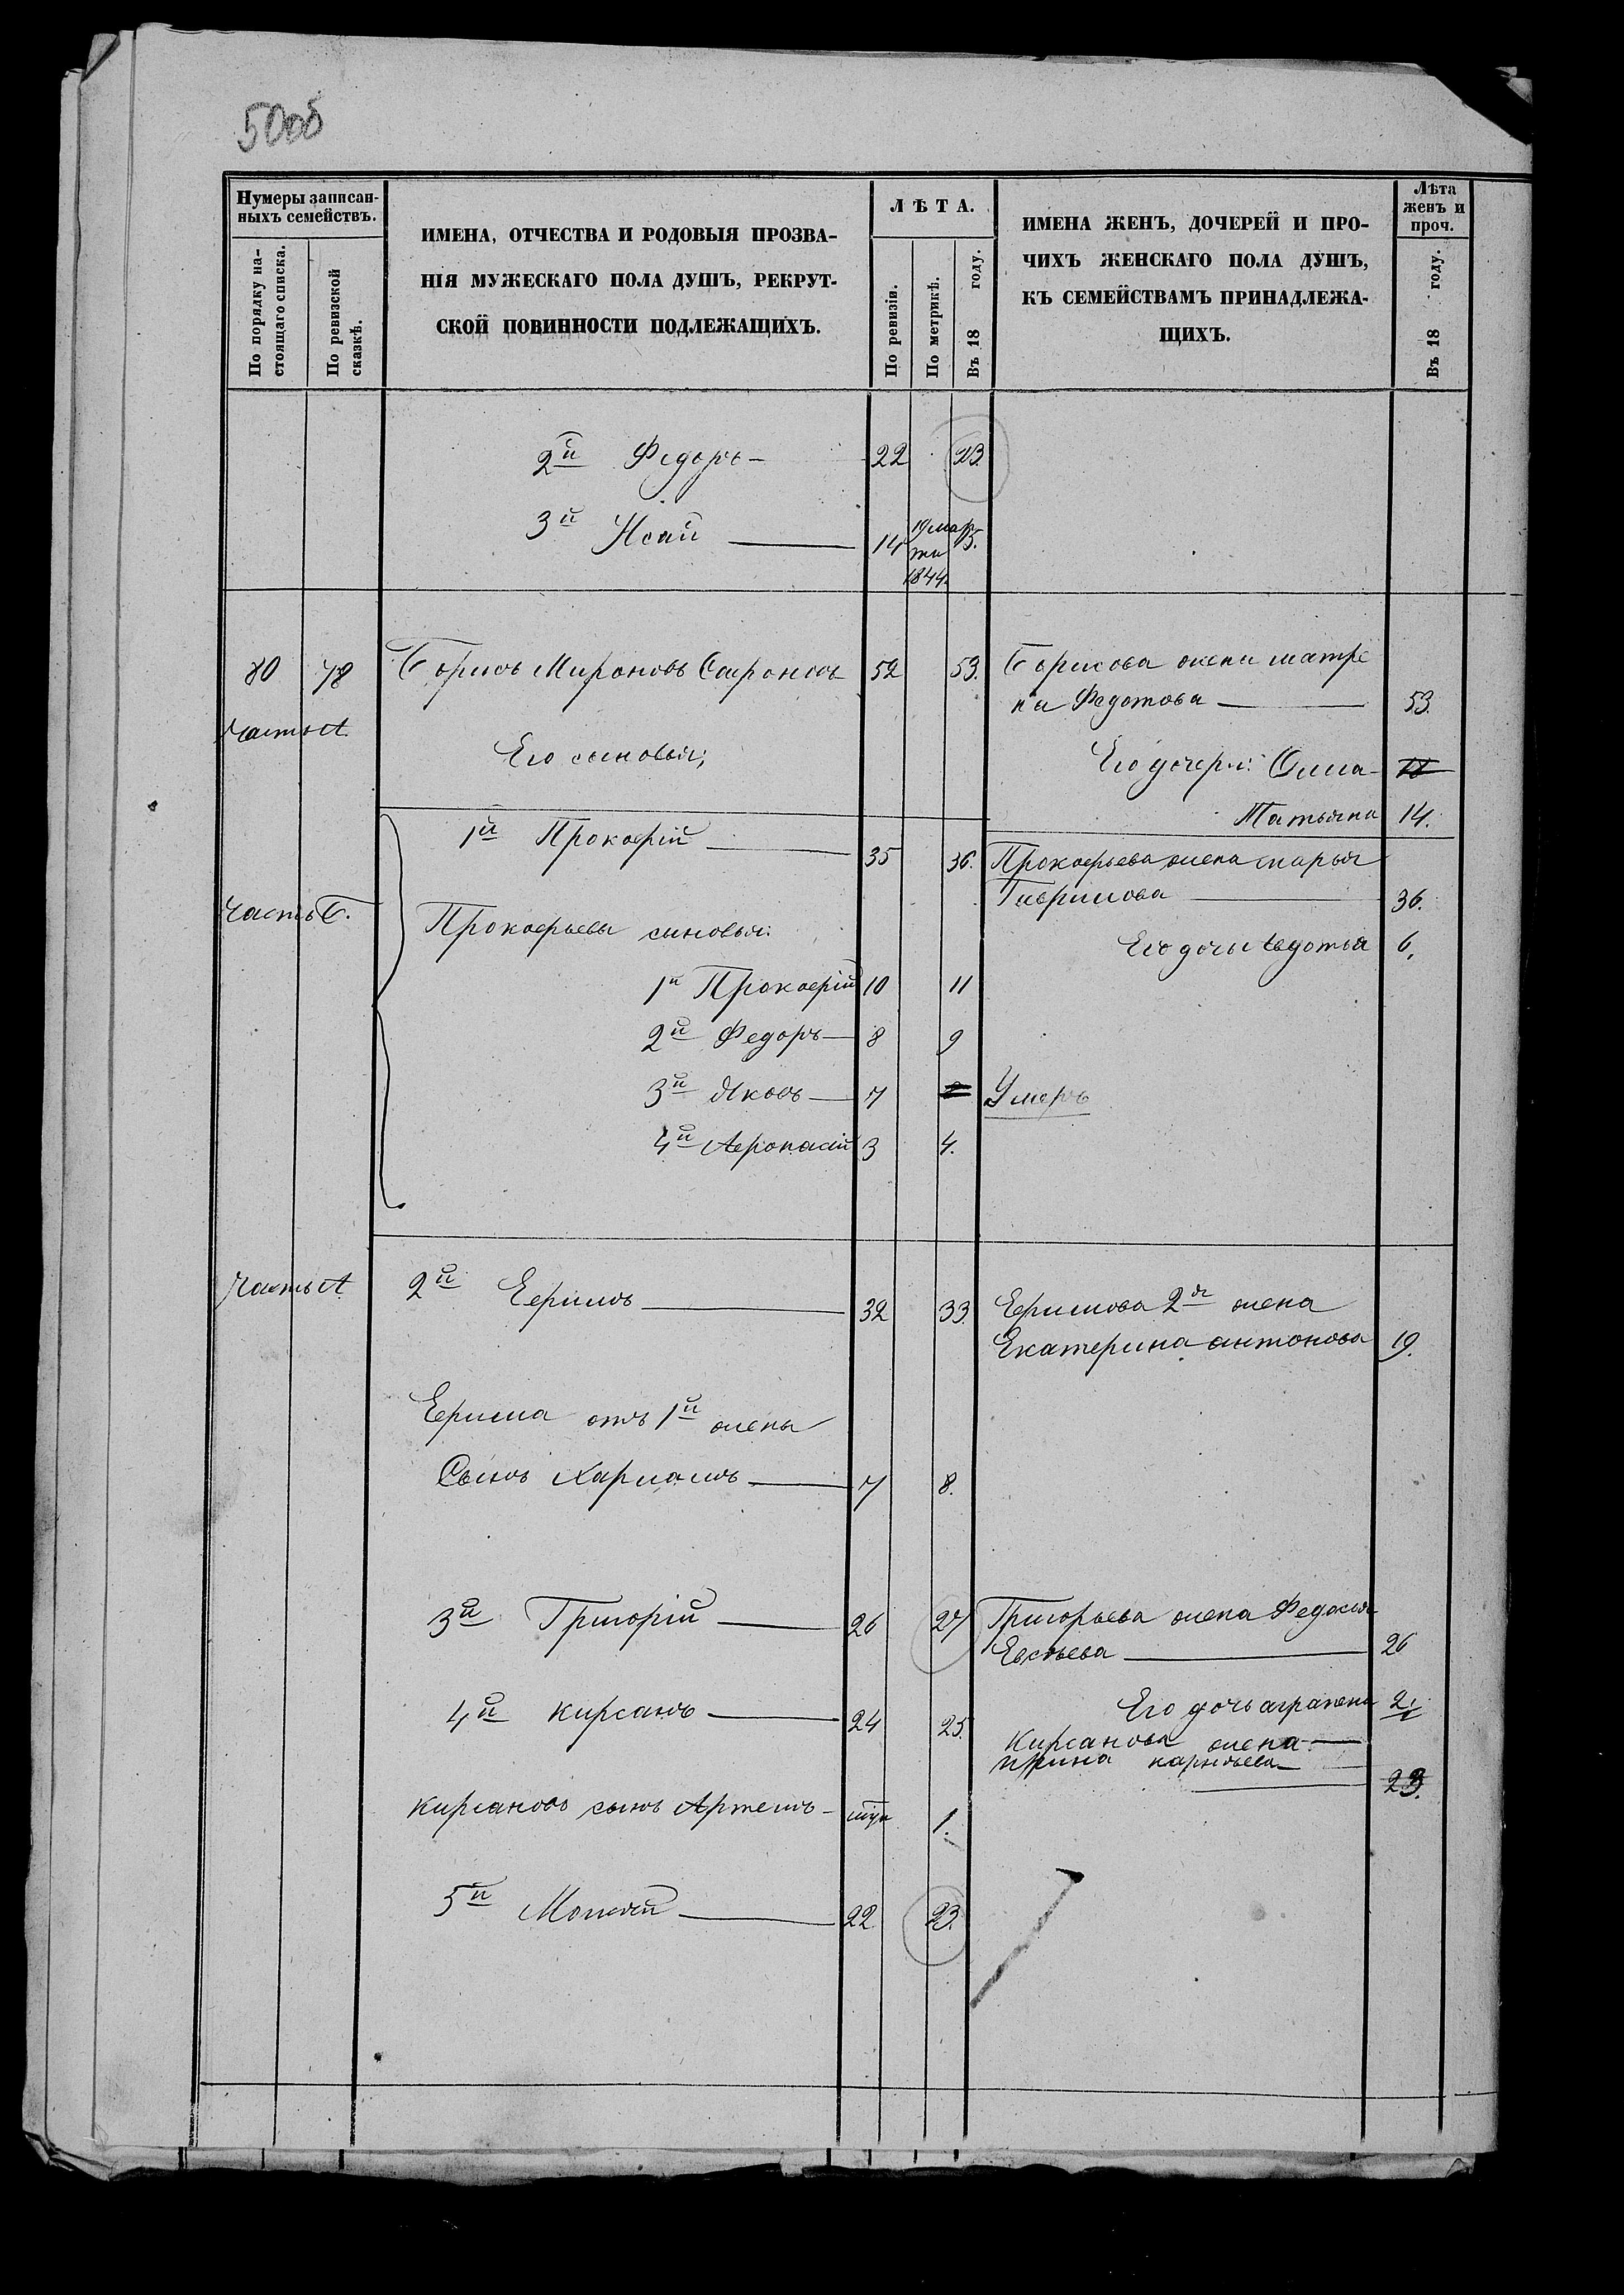 50об
Нумеры записан-
ныхъ семействъ.
По порядку на-
стоящаго списка.
По ревизской
сказкѣ.
ИМЕНА, ОТЧЕСТВА И РОДОВЫЯ ПРОЗВА-
НІЯ МУЖЕСКАГО ПОЛА ДУШЪ, РЕКРУТ-
СКОЙ ПОВИННОСТИ ПОДЛЕЖАЩИХЪ.
ЛѢТА.
По ревизіи.
По метрикѣ.
Въ 18 году.
ИМЕНА ЖЕНЪ, ДОЧЕРЕЙ И ПРО-
ЧИХЪ ЖЕНСКАГО ПОЛА ДУШЪ,
КЪ СЕМЕЙСТВАМЪ ПРИНАДЛЕЖА-
ЩИХЪ.
Лѣта
женъ и
проч.
Въ 18 году.
2й Федоръ 22 23.
3й Исай 14 19 мар та 1844. 15.
80 78 Борисъ Мироновъ 52 53. Борисова жена матре
на Федотова 53.
Часть А.
Его сыновья; Его дочери:
Татьяна 14.
1й Прокофій 35 36. Прокофьева жена марья
Гаврилова 36.
Часть Б.
Прокофьевы сыновья:
Его дочь Авдотья 6.
1й Прокофій 10 11
2й Федоръ 8 9
3й Яковъ 7 Умеръ
4й Афонасій 3 4.
Часть А 2й Ефимъ 32 33. Ефимова 2я жена
Екатерина антонова 19.
Ефима отъ 1й жены
Сынъ Харламъ 7 8.
3й Григорій 26 27 Григорьева жена Федосья
Евсѣева 26
Его дочь аграфена 2.
4й Кирсанъ 24 25. Кирсанова жена
ирина 23.
Кирсановъ сынъ Артемъ 1.
5й Мосей 22 23.